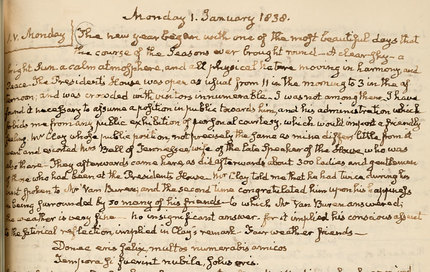 Monday 1. January 1838.
V. Monday The new year began with one of the most beautiful days that
the course of the Seasons ever brought round. A clear sky - a
bright Sun a calm atmosphere, and all physical Nature moving in harmony and
peace. The President's House was open as usual from 11 in the morning to 3 in the af
ternoon, and was crowded with visitors innumerable. I was not among them. I have
found it necessary to assume a position in public towards him, and his administration which
forbids me from any public exhibition of personal courtesy, which would import a friendly
Mr Clay whose public position not precisely the same as mine differs little from it
and escorted Mrs Bell of Tennessee, wife of the late Speaker of the House, who was
also there. They afterwards came here, as did afterwards about 300 ladies and gentlemen
of those who had been at the President's House. Mr Clay told me that he had twice during his
visit spoken to Mr Van Buren, and the second time congratulated him upon his happiness
in being surrounded by so many of his friends - to which Mr Van Buren answered;
the weather is very fine - no insignificant answer - for it implied his conscious assent
to the satirical reflection implied in Clay's remark. Fair weather friends -
Donec eris felix, multos numerabis amicos
Tempora si fuerint nubila, Solus eris.